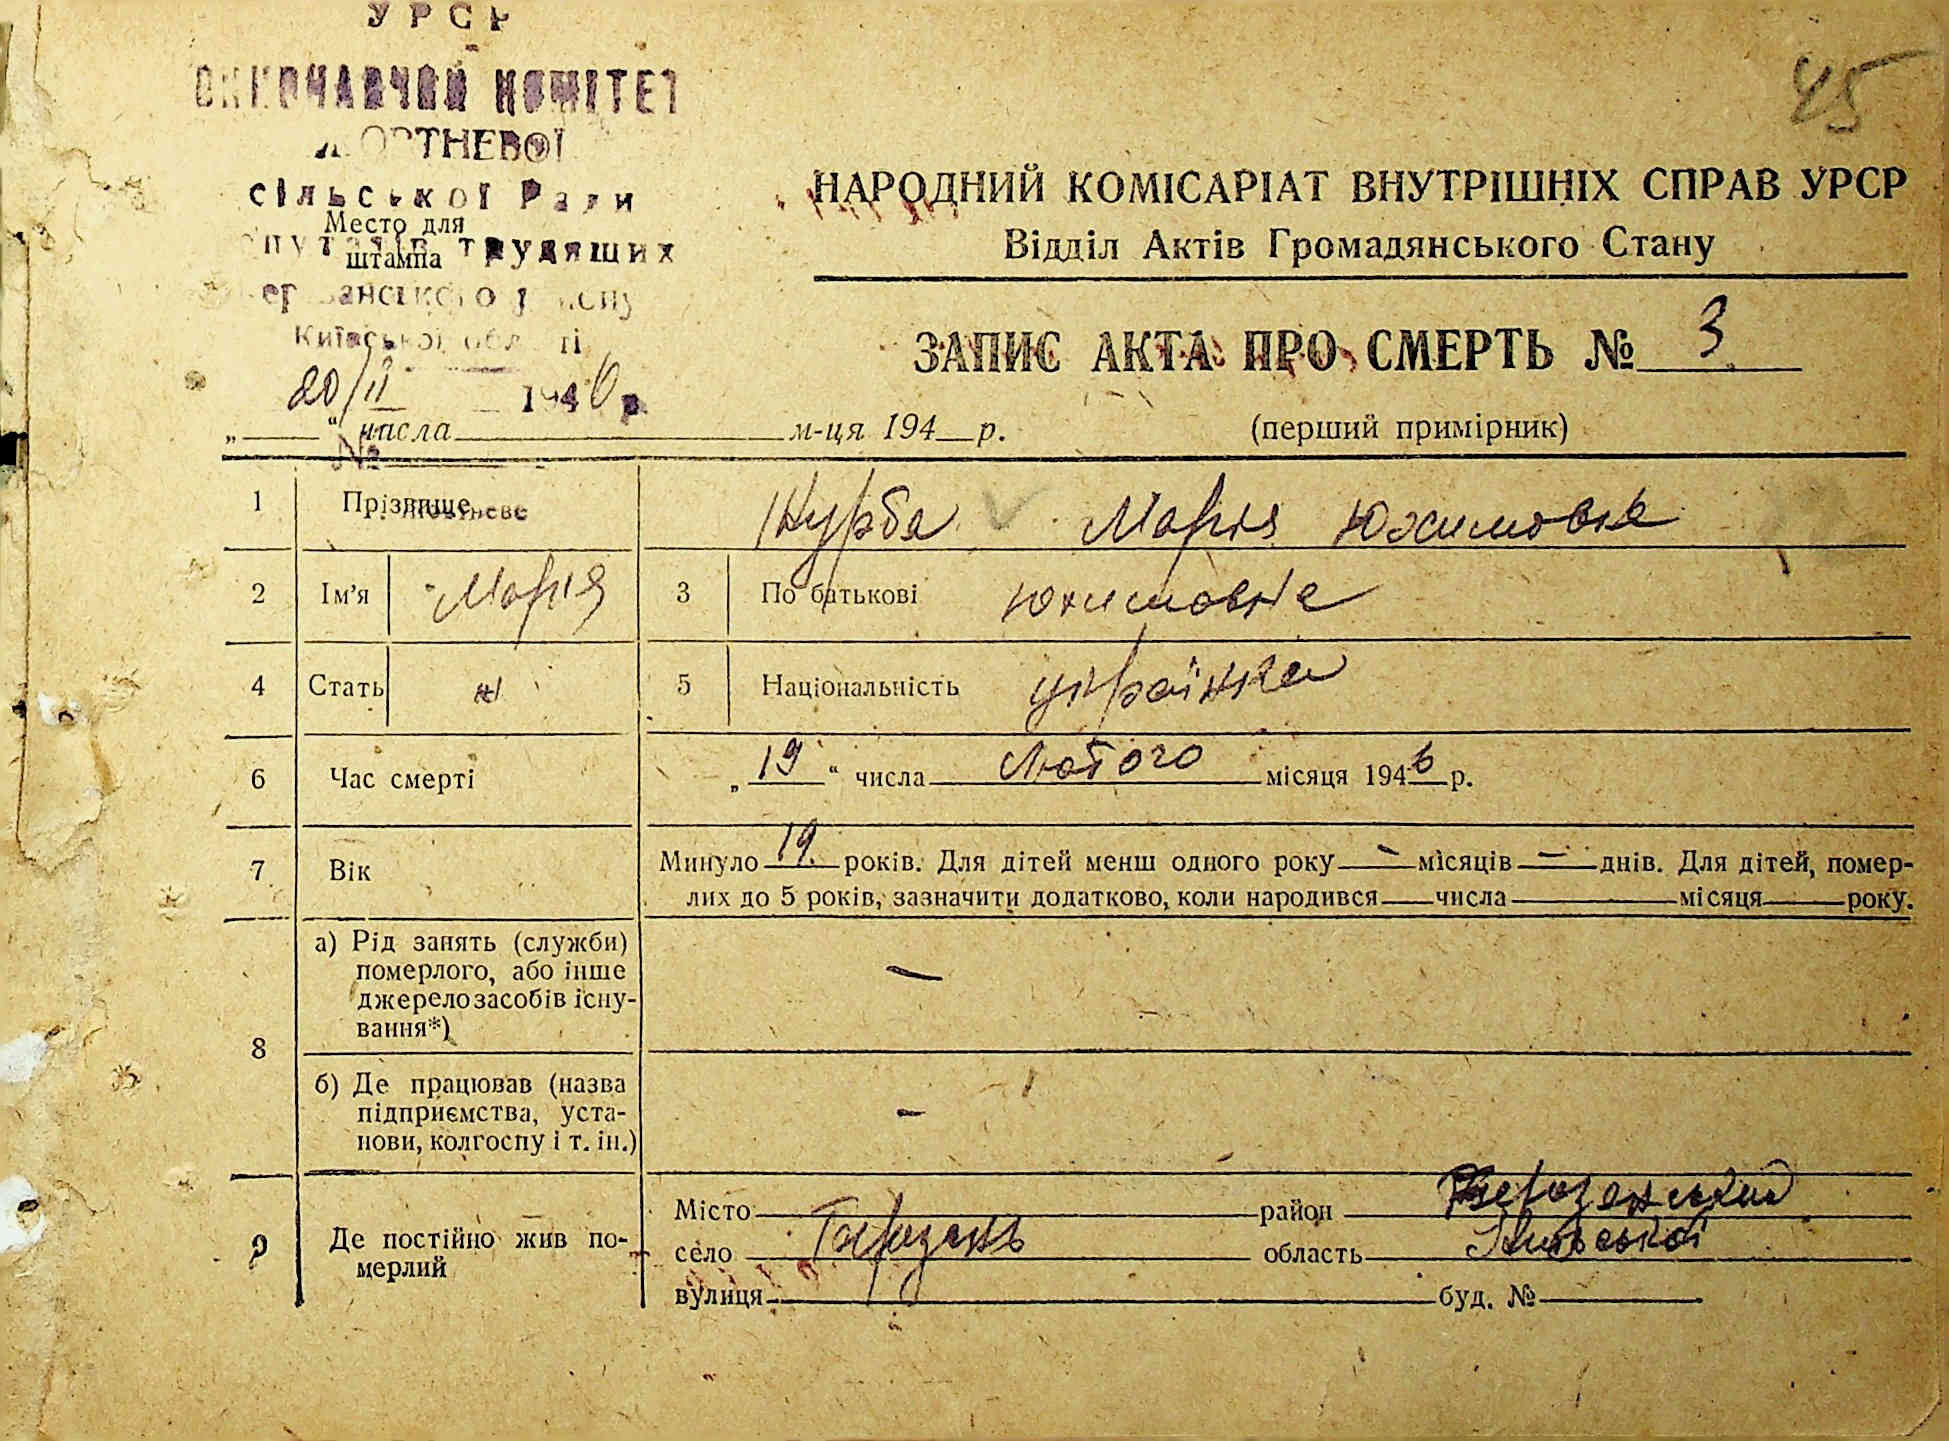 УРСР
ВИКОНАВЧИЙ КОМІТЕТ
ЖОВТНЕВОЇ
сільської Ради
Место для
депутатів трудящих
штампа
Київської області
20/II 1946 р
№
45
НАРОДНИЙ КОМІСАРІАТ ВНУТРІШНІХ СПРАВ УРСР
Відділ Актів Громадянського Стану
ЗАПИС АКТА ПРО СМЕРТЬ № 3
„ “ числа м-ця 194 р.
(перший примірник)
1 Прізвище Журба Марія Юхимовна
2 Ім'я Марія 3 По батькові Юхимовна
4 Стать ж 5 Національність українка
6 Час смерті „ 19 “ числа Лютого місяця 1946 р.
7 Вік Минуло 19 років. Для дітей менш одного року - місяців - днів. Для дітей, помер-
лих до 5 років, зазначити додатково, коли народився числа місяця року.
8 а) Рід занять (служби)
померлого, або інше
джерело засобів існу-
вання*) —
б) Де працював (назва
підприємства, уста-
нови, колгоспу і т. ін.) -
9 Де постійно жив по-
мерлий
Місто район
село область Київської
вулиця буд. №